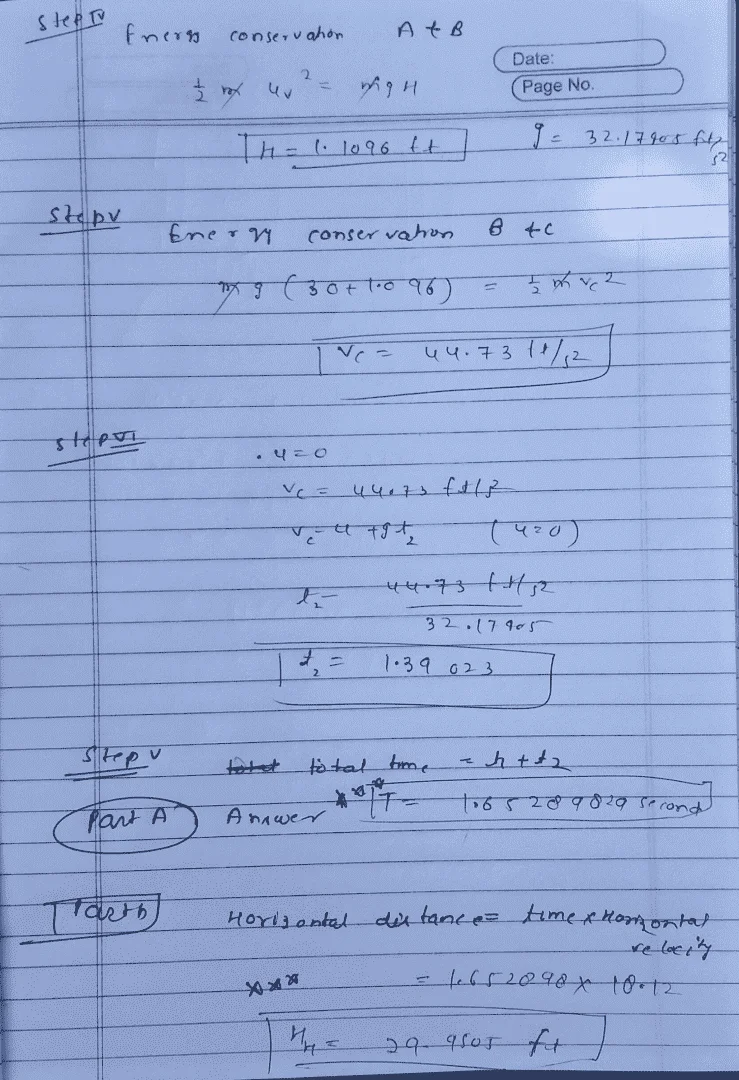 Step IV
Energy conservation A & B
Date:
½ m uv² = mgH
Page No.
H = 1.1096 ft
g = 32.17405 ft/s2
Step V
Energy conservation B & C
mg (30 + 1.096) = ½ m vc²
vc = 44.73 ft/s2
Step VI
u = 0
vc = 44.73 ft/s2
vc = u + gt2 (u=0)
t2 = 44.73 ft/s2
32.17405
t2 = 1.39023
Step V
total time = t1 + t2
Part A Answer *** T = 1.652898029 second
Part b Horizontal distance = time x Horizontal
velocity
*** = 1.652898 x 18.12
HH = 29.9505 ft